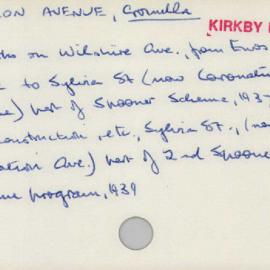 ON AVENUE, Cronulla
KIRKBY
on Wilshire Ave., from
to Sylvia St (now Coronation
) part of Spooner Scheme, 193
construction, etc., Sylvia St., (now
ation Ave.) part of 2nd Spooner
program, 1939